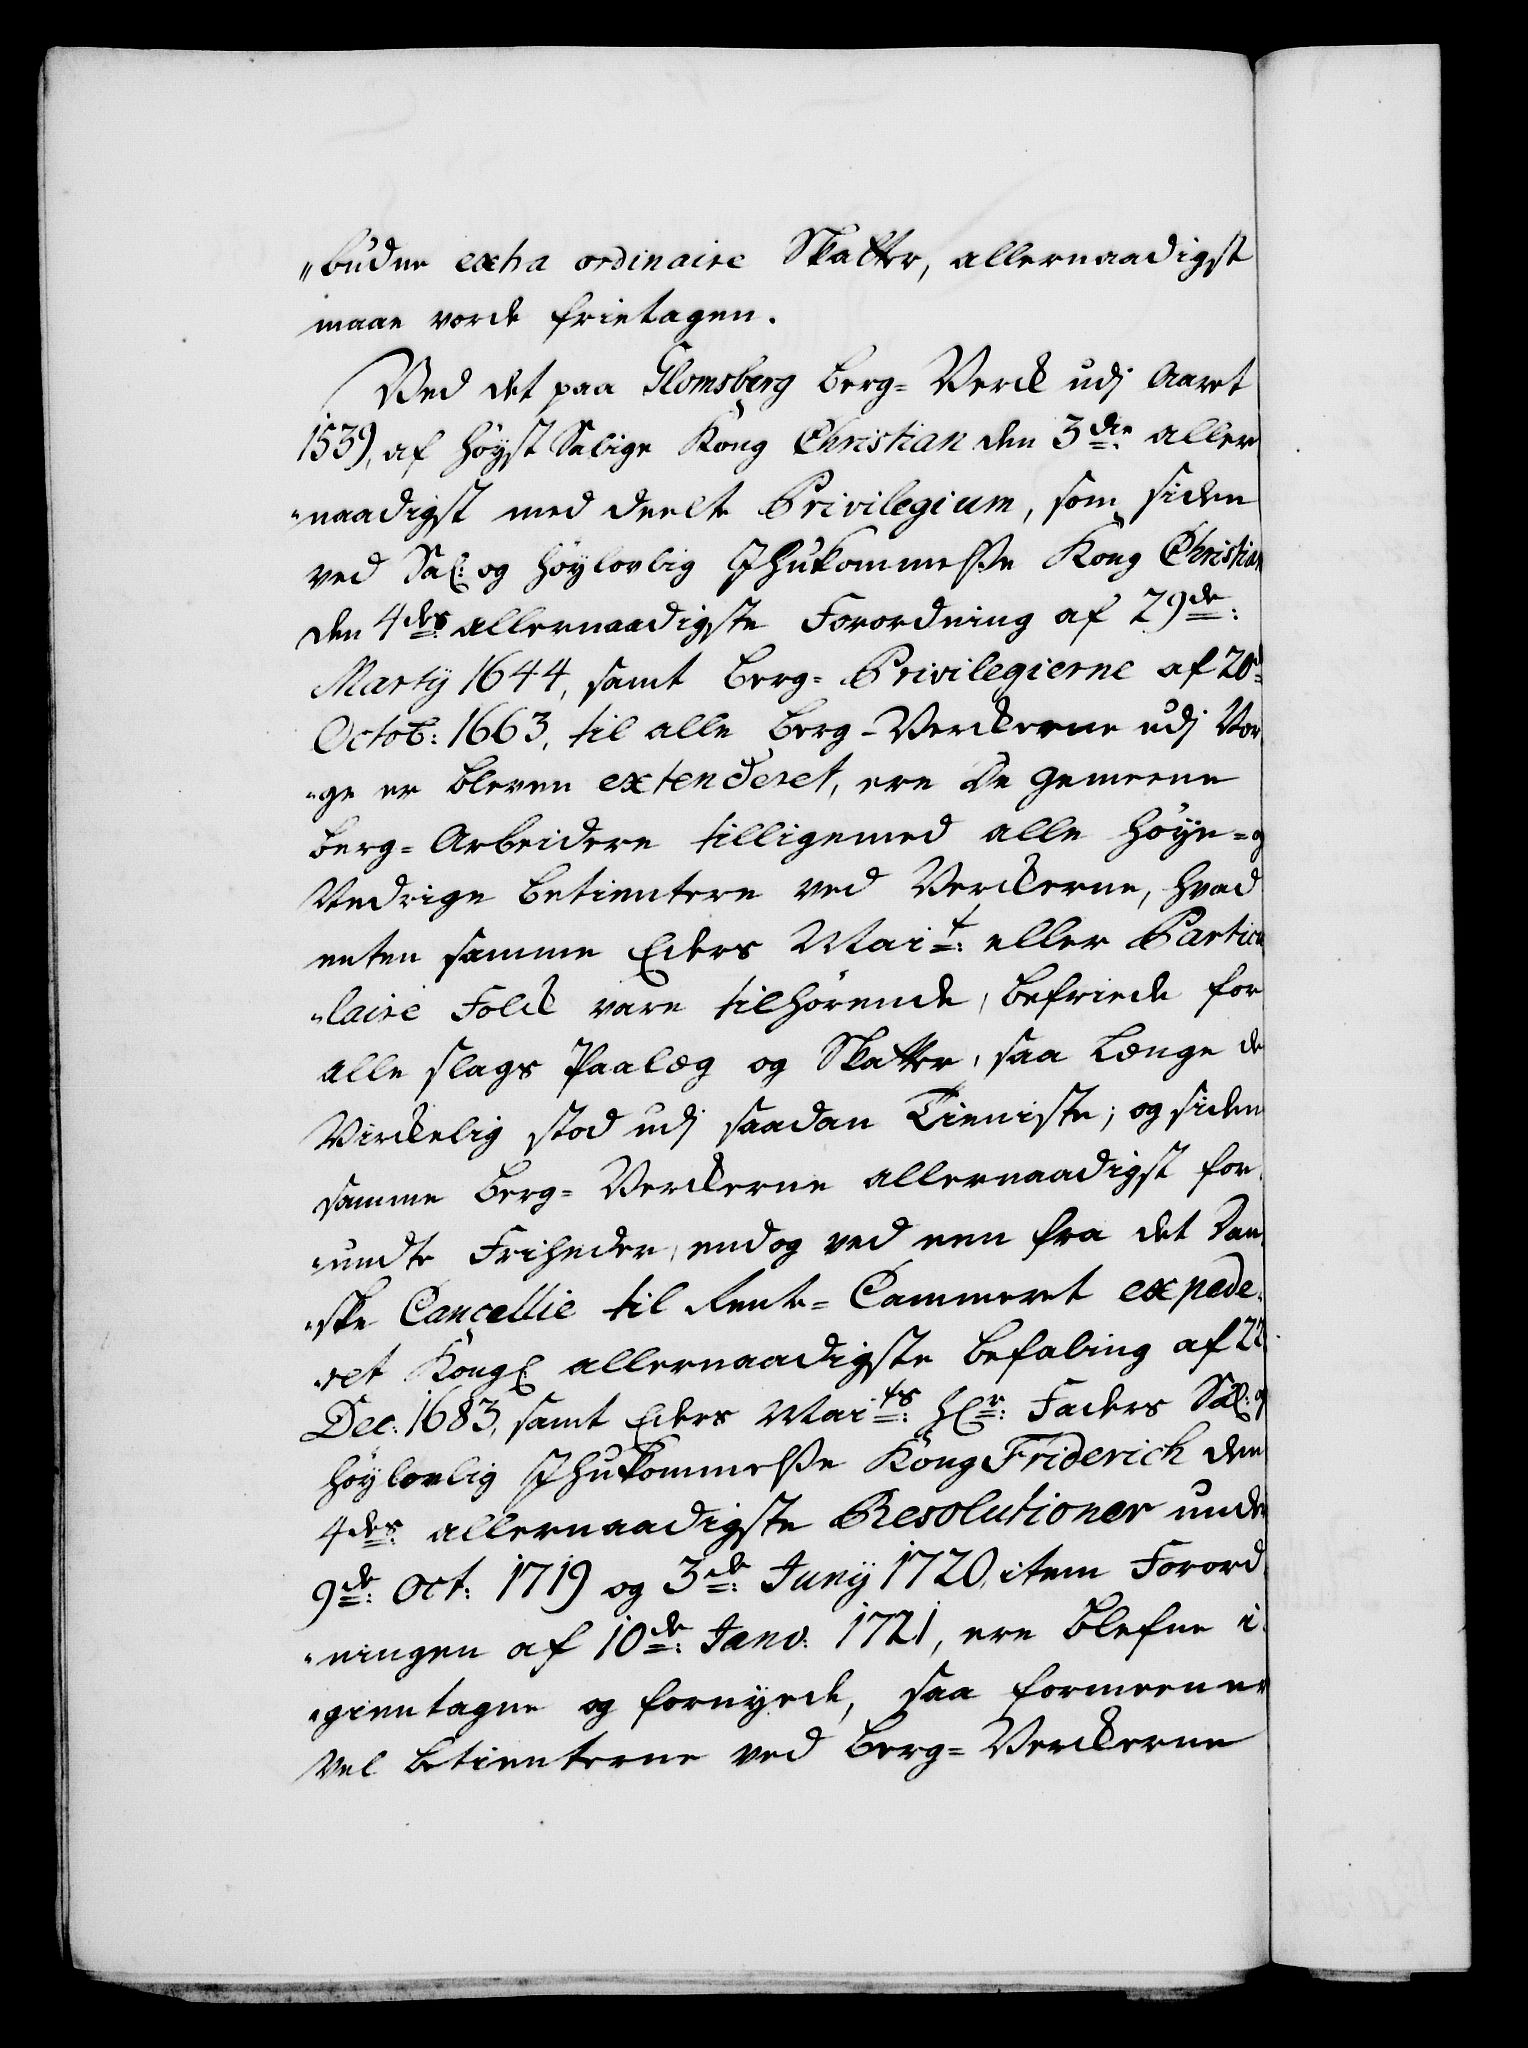 "budne extra ordinaire Skatter, allernaadigst
maae vorde frietagen.
Ved det paa Glomsberg Berg=Verck udj Aaret
1539, af høyst Salige Kong Christian den 3die aller
"naadigst med deelte Privilegium, som siden
ved Sal: og høylovlig Ihukommelsse Kong Christian
den 4des allernaadigste Forordning af 29de:
Marty 1644, samt Berg=Privilegierne af 20d:
Octob: 1663, til alle Berg=Verckerne udj Nor
"ge er bleven extenderet, ere De gemeene
Berg=Arbeidere tilligemed alle høye=og
Nedrige betientere ved Verckerne, hvad
enten samme Eders Mait: eller Particu
"laire Folck vare tilhørende, befriede for
alle slags Paalæg og Skatter, saa længe de
Virckelig stod udj saadan Tieniste; og siden
samme Berg=Verckerne allernaadigst for
"undte Friheder, endog ved een fra det Dan
"ske Cancellie til Rente=Cammeret expede
"ret Kongl allernaadigste befaling af 22
Dec: 1683, samt Eders Maits: Hr: Faders Sal: og
høylovlig Ihukommelsse Kong Friderich den
4des allernaadigste Resolutioner under
9de: Oct: 1719 og 3de: Juny 1720, item Forord
"ningen af 10de: Janv: 1721, ere blefne i
"gientagne og fornyede, saa formeener
Vel betienterne ved Berg=Verckerne